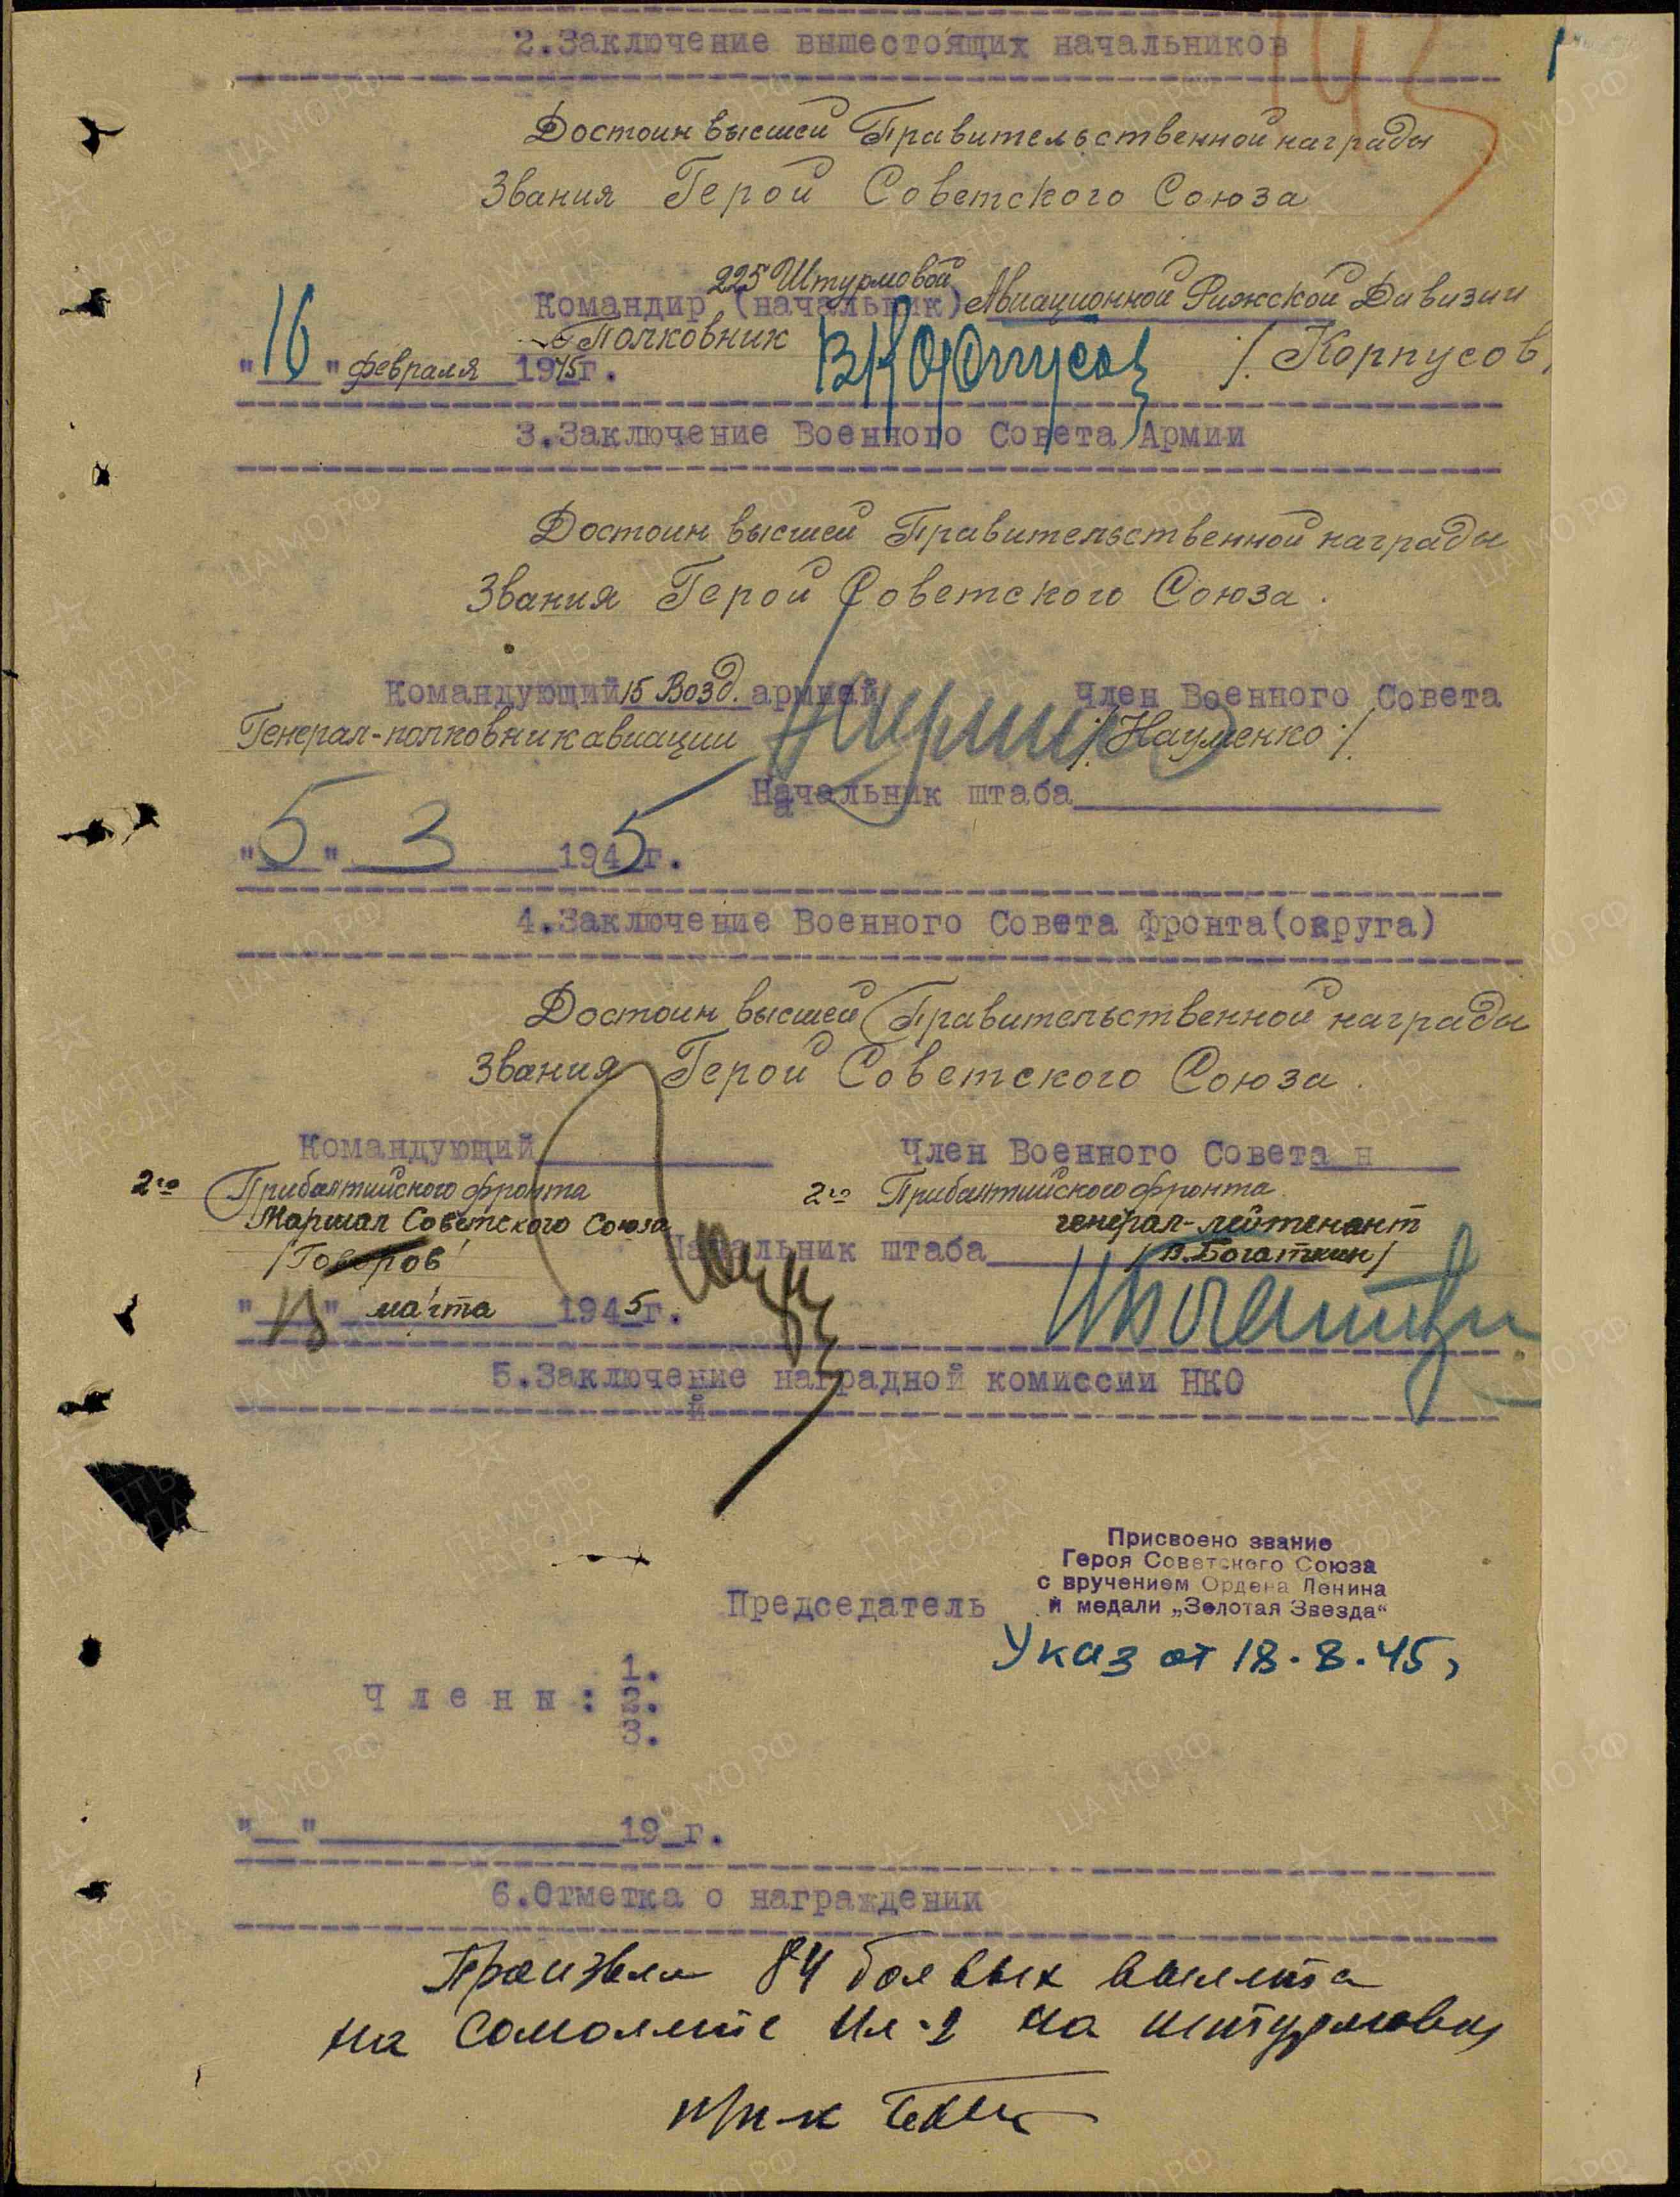 2.Заключение вышестоящих начальников
Достоин высшей Правительственной награды
Звания Герой Советского Союза
225 Штурмовой
Командир (начальник) Авиационной Рижской Дивизии
Полковник /. Корпусов
"16" февраля 1945г.
3.Заключение Военного Совета Армии
Достоин высшей Правительственной награды
Звания Герой Советского Союза.
Командующий 15 Возд. армией Член Военного Совета
Генерал-полковник авиации /.Науменко./
Начальник штаба
"5" 3 1945г.
4.Заключение Военного Совета фронта(округа)
Достоин высшей Правительственной награды
Звания Герой Советского Союза.
Командующий Член Военного Совета н
2го Прибалтийского фронта 2го Прибалтийского фронта
Маршал Советского Союза генерал-лейтенант
/Говоров/ Начальник штаба /В.Богаткин/
" " марта 1945г.
5.Заключение наградной комиссии НКО
й
Присвоено звание
Героя Советского Союза
с вручением Ордена Ленина
и медали „Золотая Звезда“
Председатель
Указ от 18.8.45,
Члены: 1.
2.
3.
"__"____19_г.
6.Отметка о награждении
Произвел 84 боевых вылета
на самолете Ил-2 на штурмовку